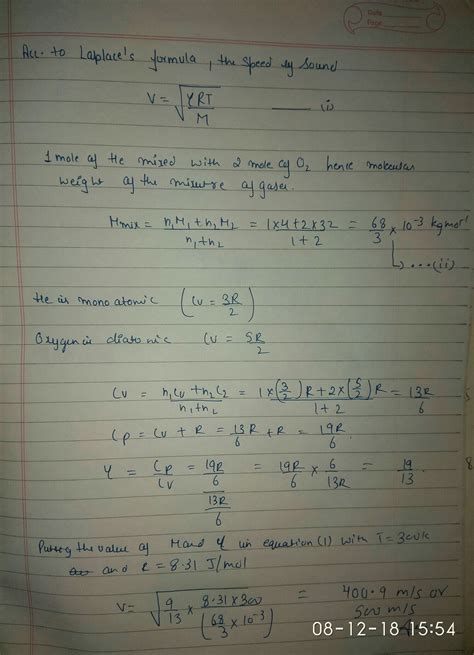 Date
Page
Acc. to Laplace's formula, the speed of sound
V = √(γRT/M) —— (i)
1 mole of He mixed with 2 mole of O2 hence molecular
weight of the mixture of gases.
Mmix = n1M1+n2M2/n1+n2 = 1x4+2x32/1+2 = 68/3 x 10^-3 kgmol^-1
↳ ...(ii)
He is monoatomic (Cv = 3R/2)
Oxygen is diatomic Cv = 5R/2
Cv = n1Cv+n2C2/n1+n2 = 1x(3/2)R+2x(5/2)R/1+2 = 13R/6
Cp = Cv + R = 13R/6 + R = 19R/6
γ = Cp/Cv = 19R/6/13R/6 = 19R/6 x 6/13R = 19/13.
Putting the value of M and γ in equation (1) with T = 300k
and R = 8.31 J/mol
V = √(9/13 x 8.31x300/(68/3 x 10^-3)) = 400.9 m/s or
500 m/s
08-12-18 15:54